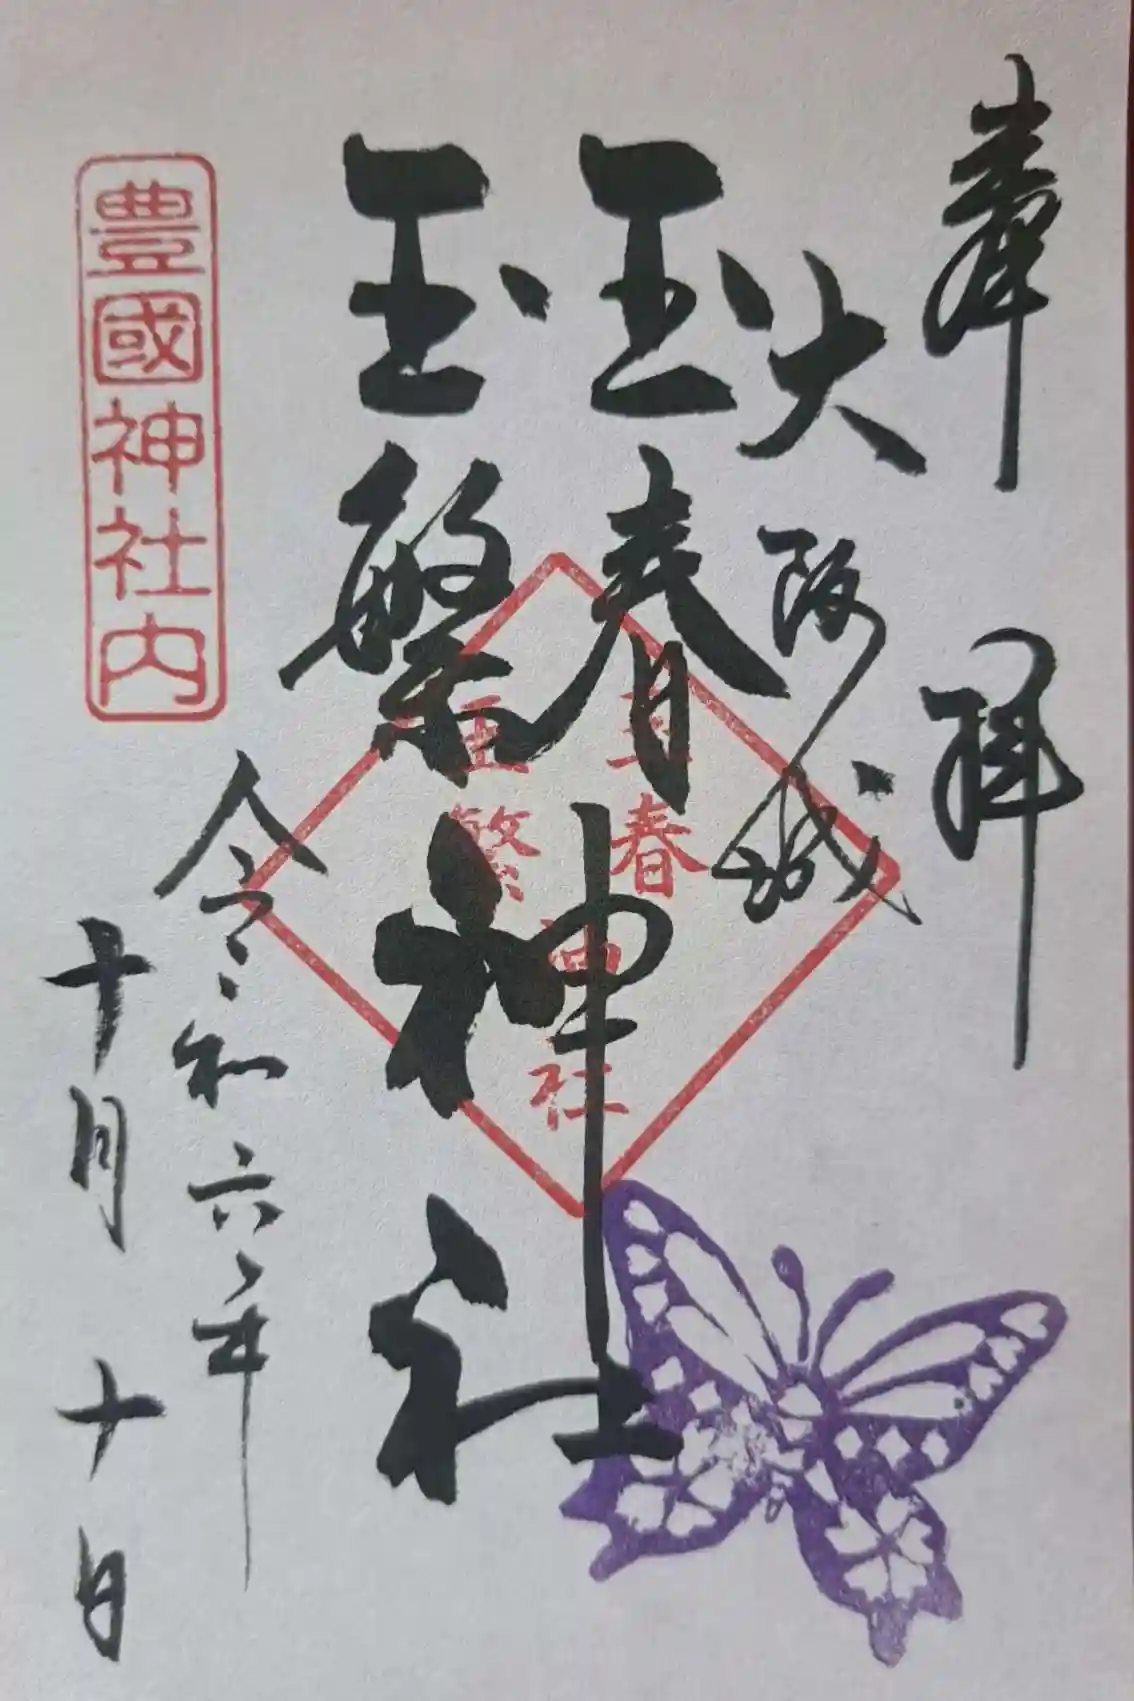 奉拝
大阪城
玉春
玉繁
神社
玉春
玉繁
神社
令和六年
十月十日
豊國神社内